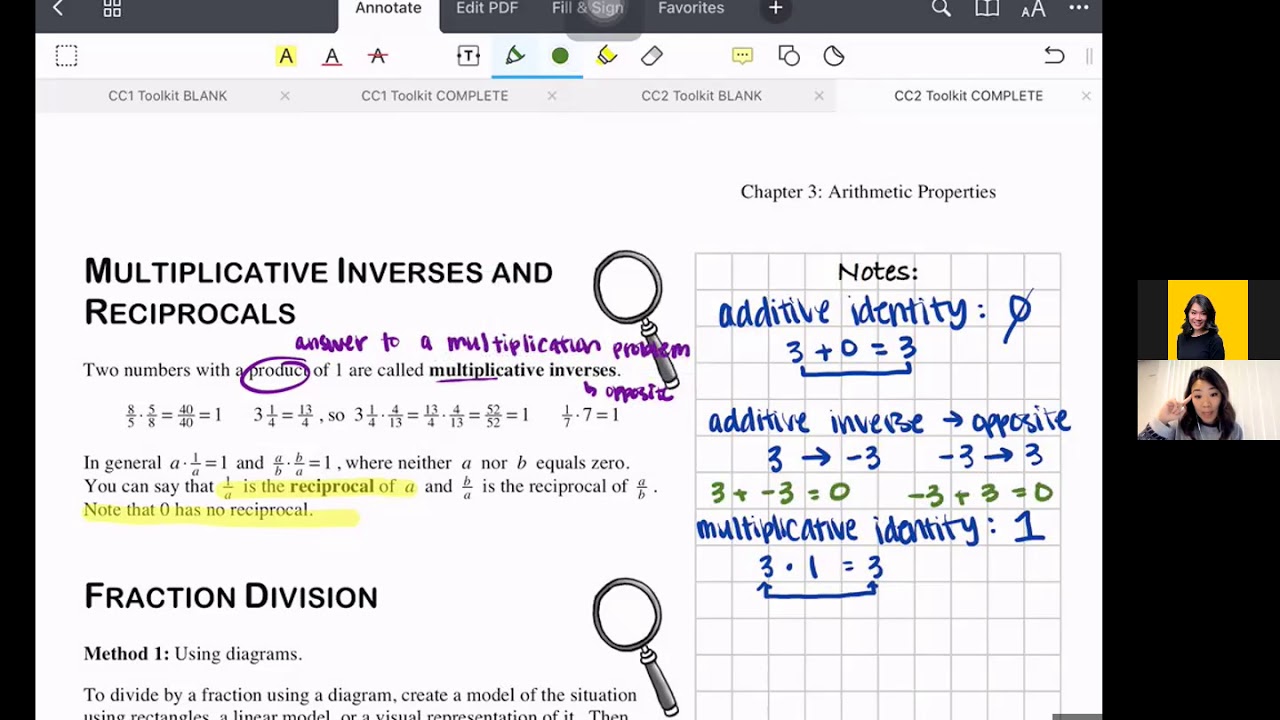 Annotate Edit PDF Fill & Sign Favorites + AA
A A A T
CC1 Toolkit BLANK × CC1 Toolkit COMPLETE × CC2 Toolkit BLANK × CC2 Toolkit COMPLETE ×
Chapter 3: Arithmetic Properties
MULTIPLICATIVE INVERSES AND
RECIPROCALS
answer to a multiplication problem
Two numbers with a product of 1 are called multiplicative inverses.
↳ opposite
8/5 · 5/8 = 40/40 = 1 3 1/4 = 13/4, so 3 1/4 · 4/13 = 13/4 · 4/13 = 52/52 = 1 1/7 · 7 = 1
In general a · 1/a = 1 and a/b · b/a = 1, where neither a nor b equals zero.
You can say that 1/a is the reciprocal of a and b/a is the reciprocal of a/b.
Note that 0 has no reciprocal.
FRACTION DIVISION
Method 1: Using diagrams.
To divide by a fraction using a diagram, create a model of the situation
using rectangles, a linear model, or a visual representation of it. Then
Notes:
additive identity: 0
3 + 0 = 3
additive inverse → opposite
3 → -3 -3 → 3
3 + -3 = 0 -3 + 3 = 0
multiplicative identity: 1
3 · 1 = 3